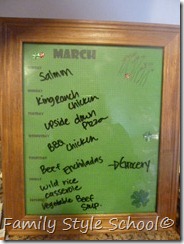 MARCH
Salmon
King ranch
chicken
upside down
pizza
BBQ chicken
Beef Enchiladas
Grocery
wild rice
casserole
Vegetable Beef
Soup.
Family Style School©